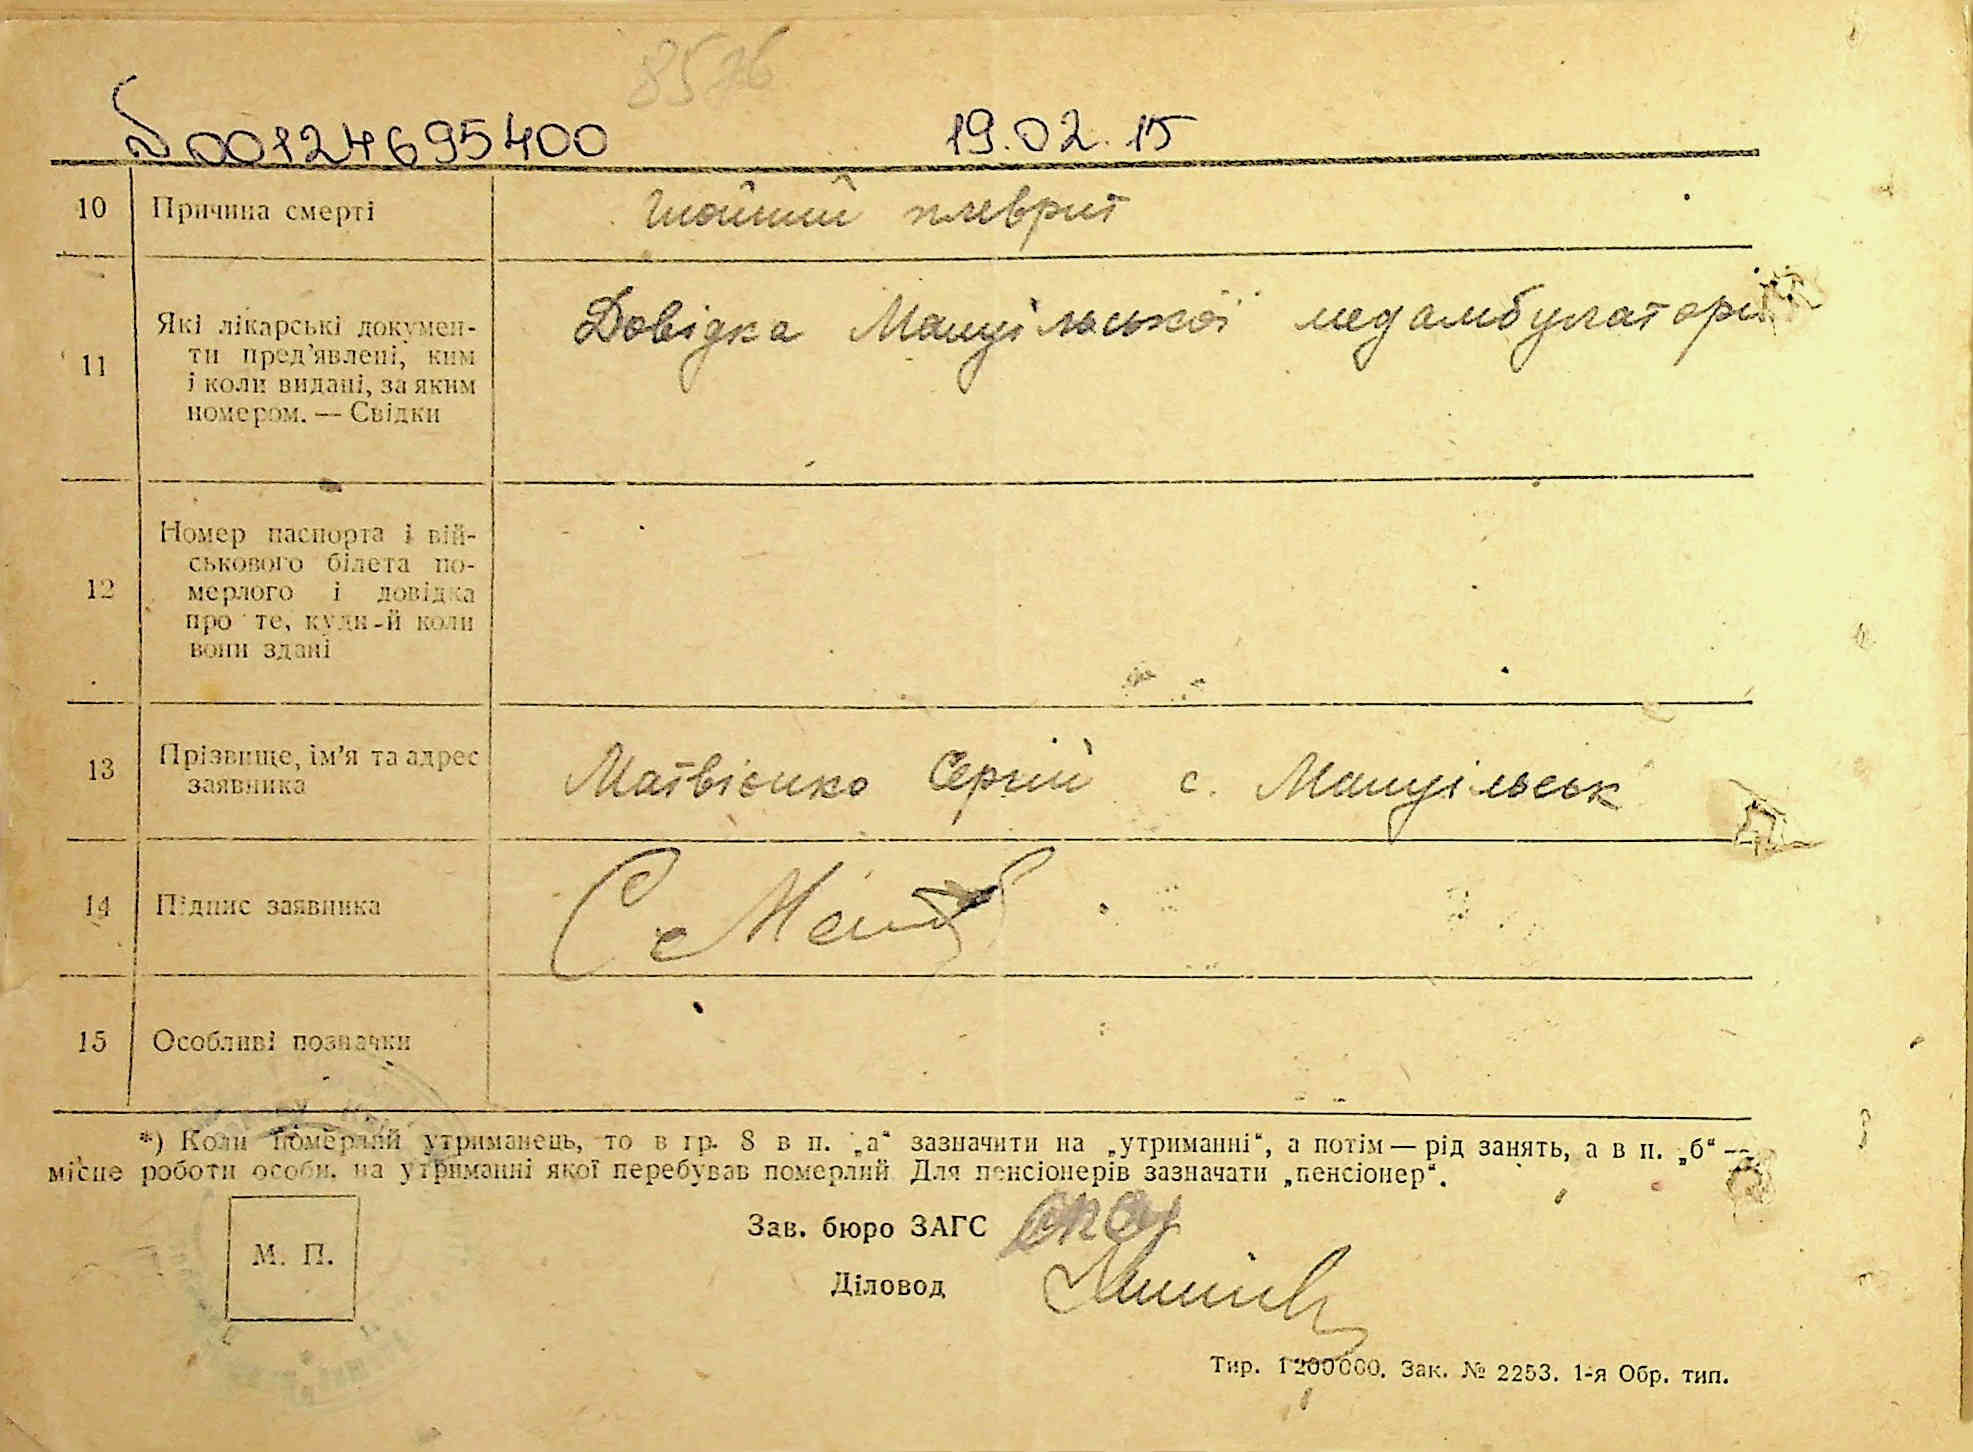 00124695400 19.02.15
10 Причина смерті Гнойний плеврит
11 Які лікарські докумен-
ти пред'явлені, ким
і коли видані, за яким
номером. — Свідки
Довідка Мануїльської медамбулаторії
12 Номер паспорта і вій-
ськового білета по-
мерлого і довідка
про те, куди й коли
вони здані
13 Прізвище, ім'я та адрес
заявника
Матвієнко Сергій с. Мануїльськ
14 Підпис заявника
15 Особливі позначки
*) Коли померлий утриманець, то в гр. 8 в п. „а“ зазначити на „утриманні“, а потім — рід занять, а в п. „б“ —
місце роботи особи, на утриманні якої перебував померлий. Для пенсіонерів зазначати „пенсіонер“.
М. П.
Зав. бюро ЗАГС
Діловод
Тир. 1200000. Зак. № 2253. 1-я Обр. тип.